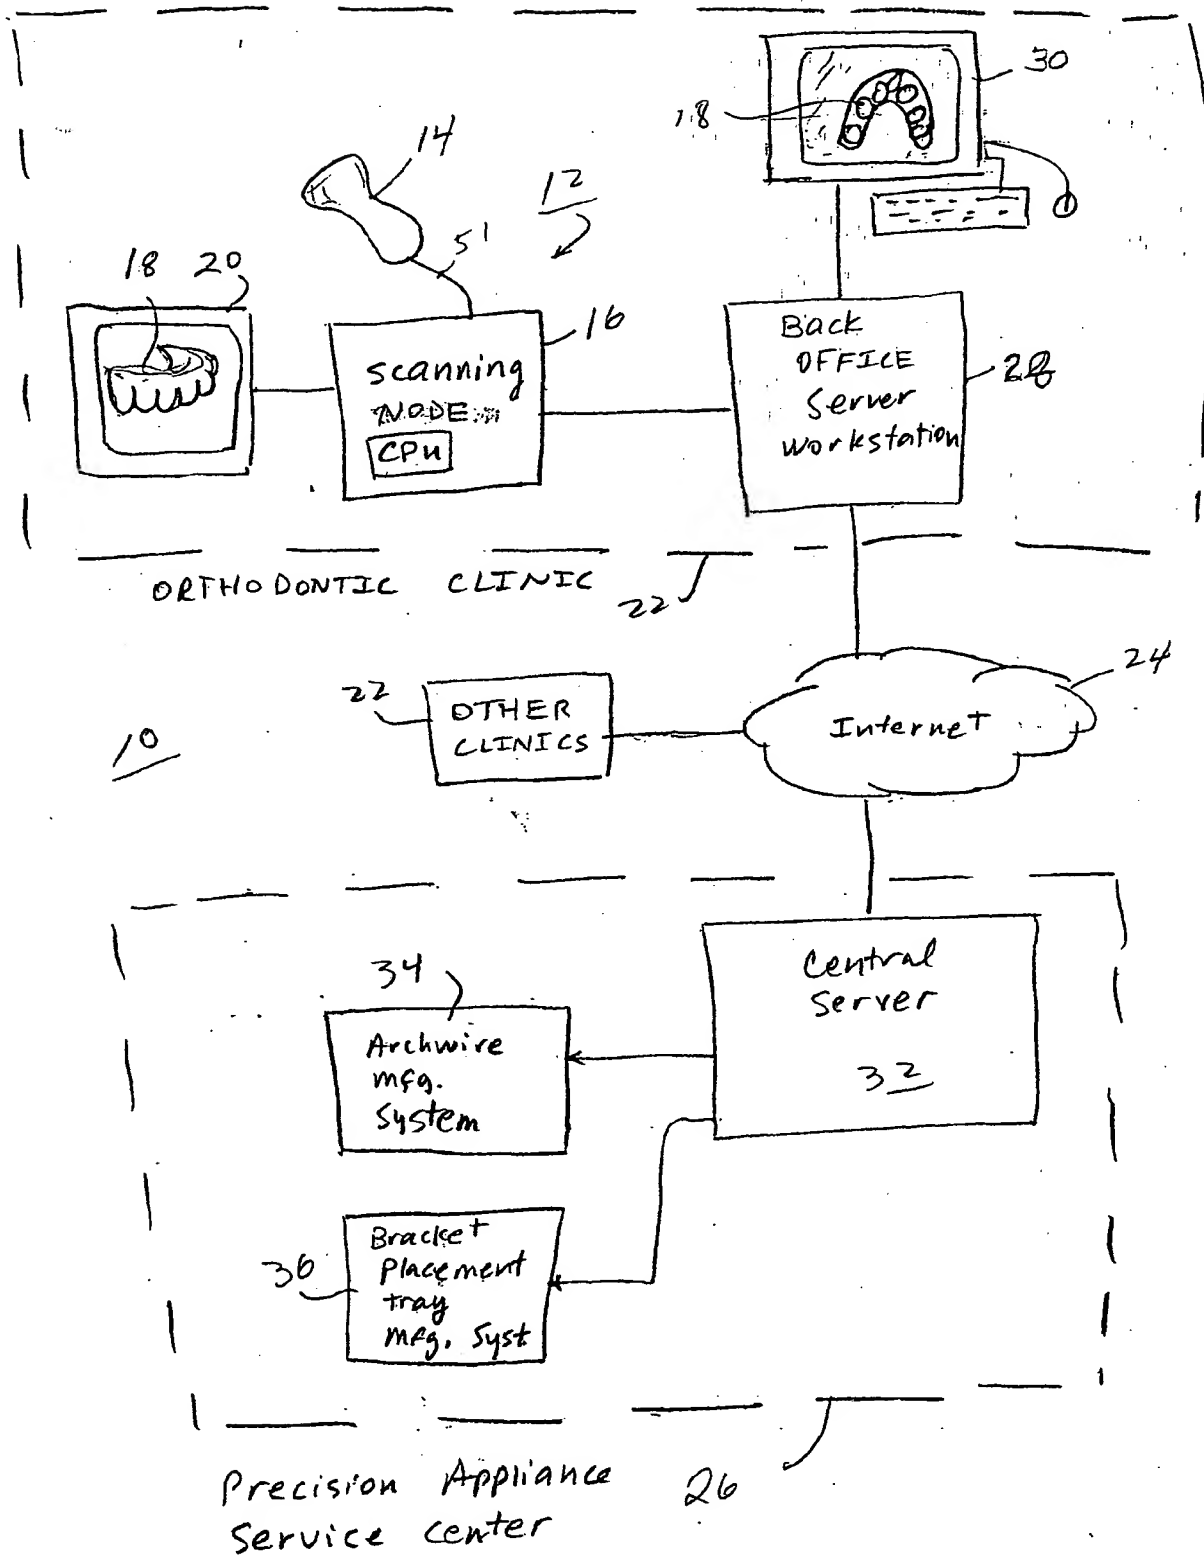 30
18
14
12
51
18 20
16
Scanning
NODE
CPU
Back
OFFICE
Server
Workstation
28
ORTHODONTIC CLINIC
22
24
22
OTHER
CLINICS
Internet
10
Central
Server
32
34
Archwire
mfg.
System
36
Bracket
Placement
tray
mfg. Syst
Precision Appliance
Service Center
26